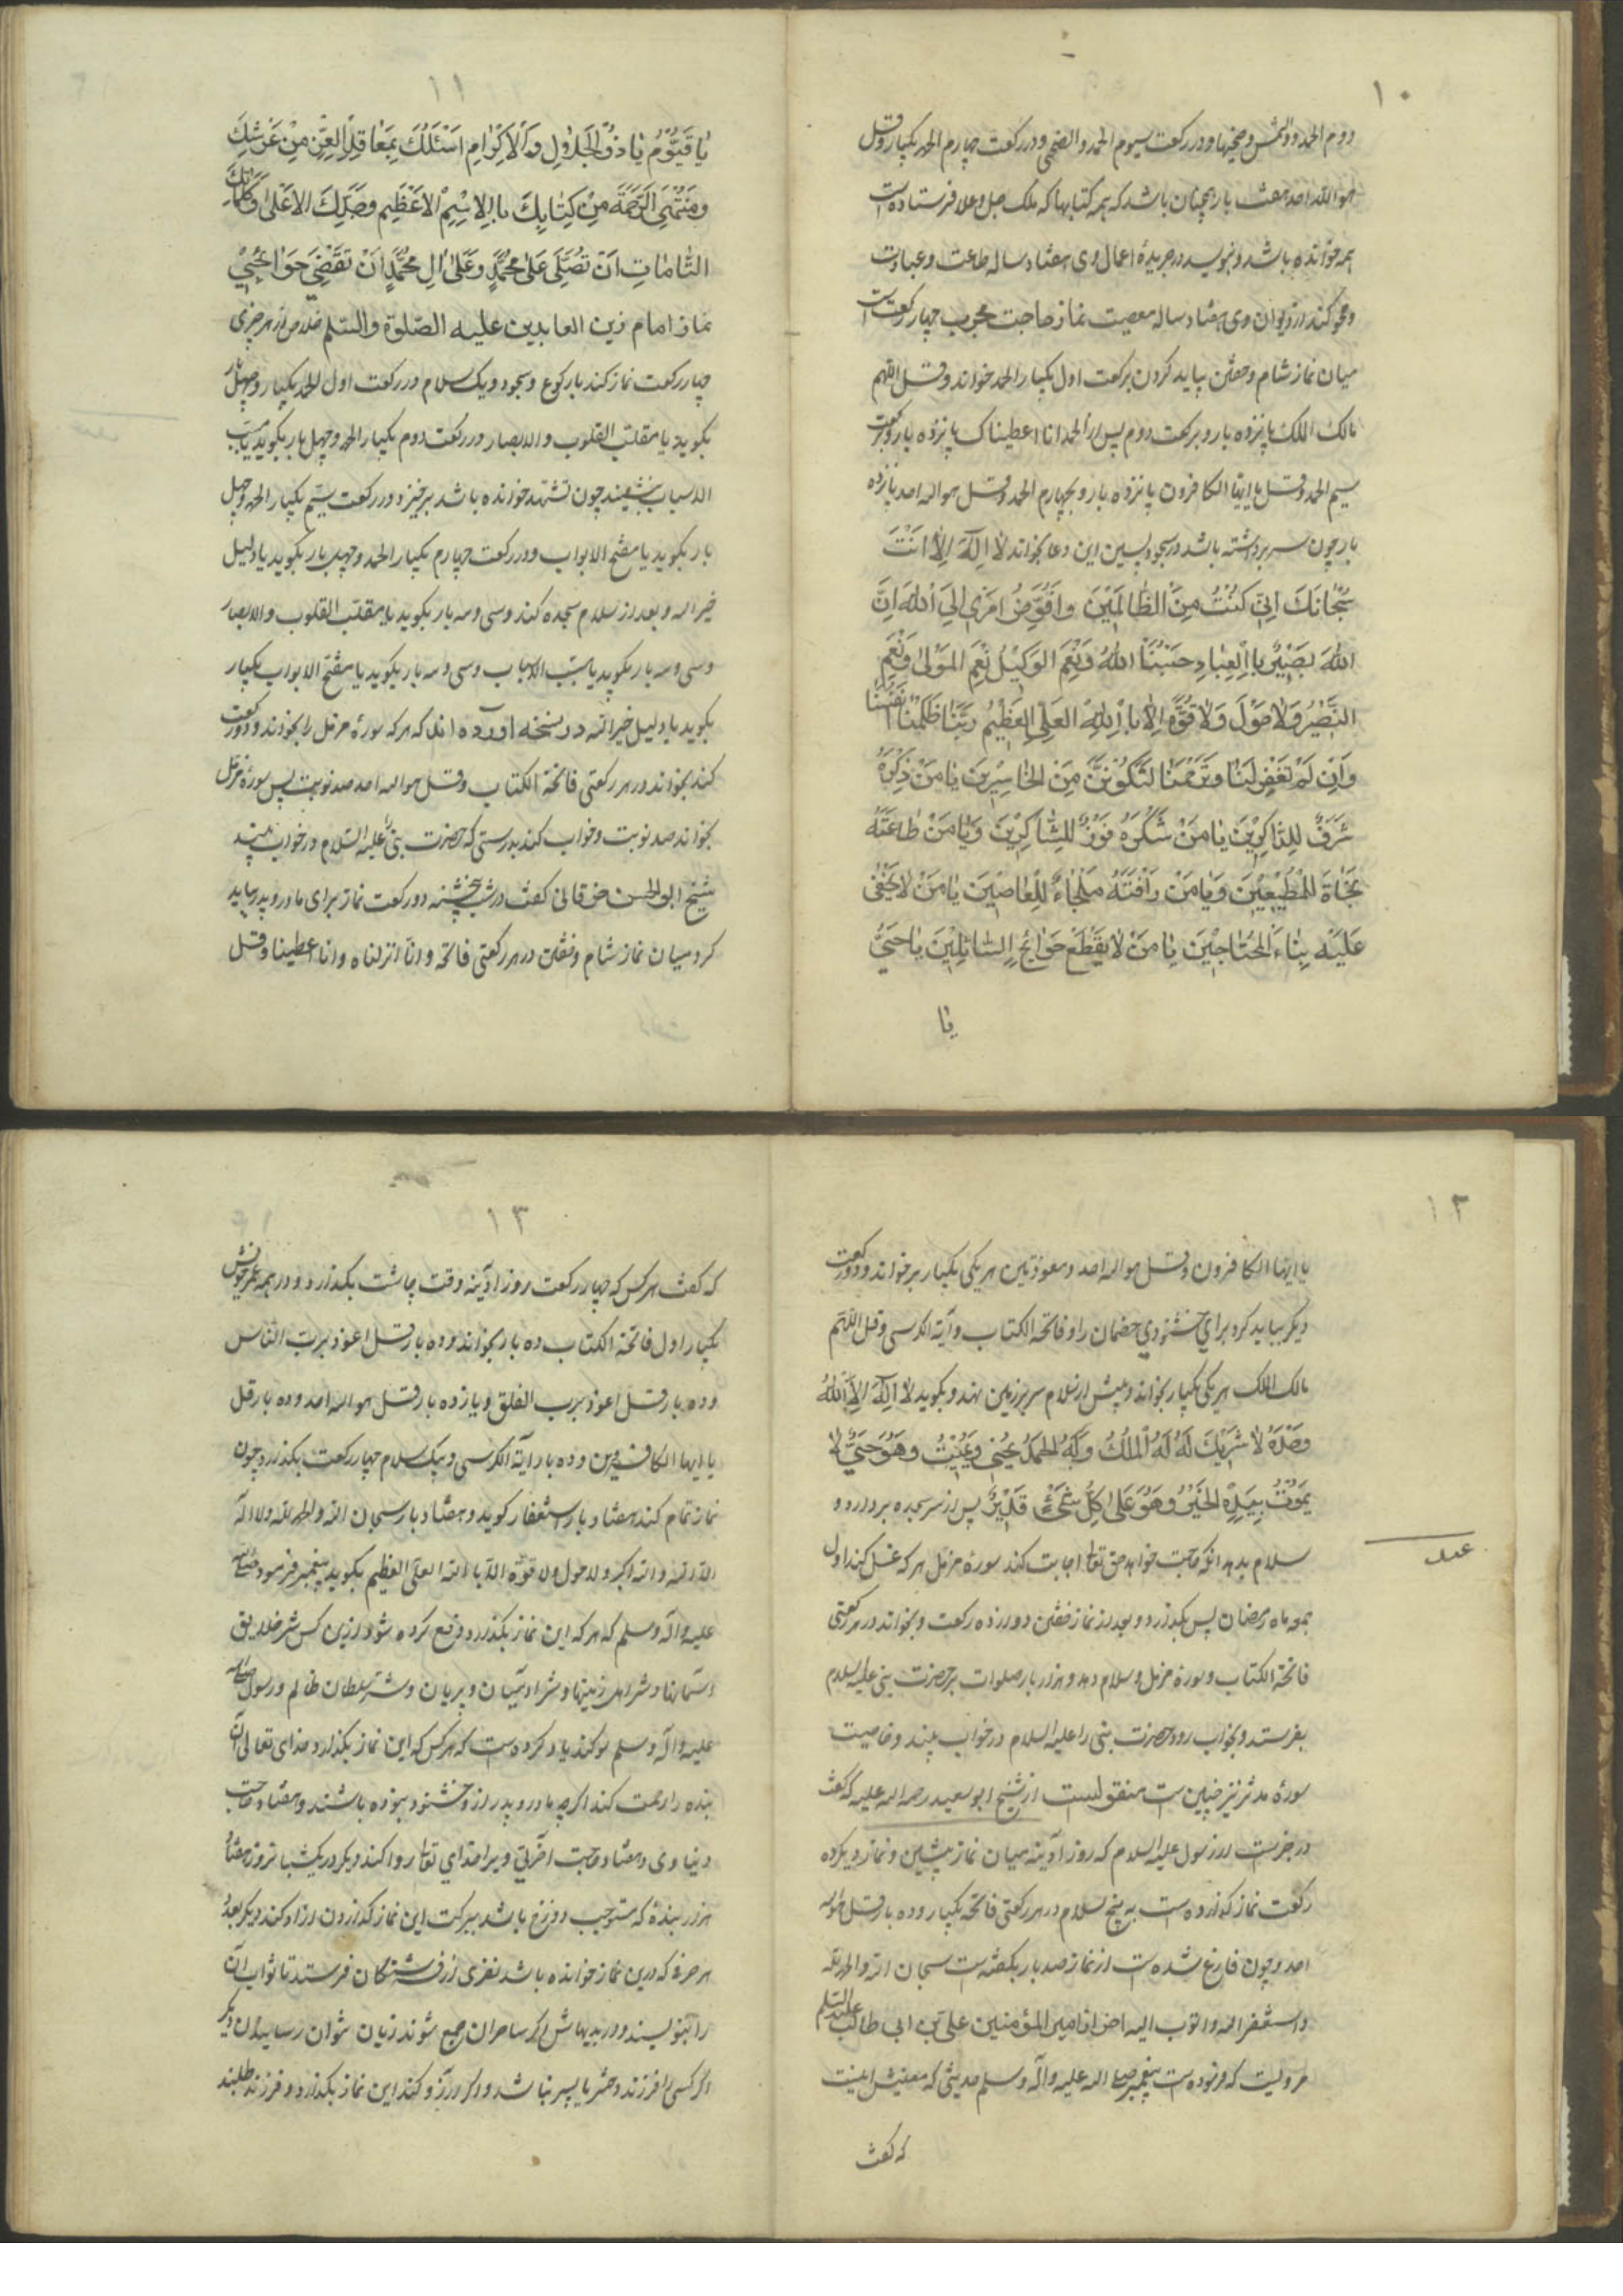 ۱۰
دوم الحمد و والشمس وضحیها و در رکعت سیوم الحمد و الضحی و در رکعت چهارم الحمد یکبار و قل
هو الله احد هفت بار همچنان باشد که همه کتابها که ملک جل و علا فرستاده است
همه خوانده باشد و بنویسد در جریدهٔ اعمال وی هفتاد ساله طاعت و عبادت
و محو کند از دیوان وی هفتاد ساله معصیت نماز حاجت مجرب چهار رکعت است
میان نماز شام و خفتن بباید کردن برکعت اول یکبار الحمد خواند و قل اللهم
مالک الملک پانزده بار و برکعت دوم پس از الحمد انا اعطیناک پانزده بار و برکعت
سیم الحمد و قل یا ایها الکافرون پانزده بار و بچهارم الحمد و قل هو الله احد پانزده
بار چون سر برداشته باشد در سجود پسین این دعا بخواند لَا اِلَهَ اِلَّا اَنْتَ
سُبْحَانَكَ اِنِّی كُنْتُ مِنَ الظَّالِمَیْنَ وَاُفَوِّضُ اَمْرَی اِلَیَ اللهِ اِنَّ
اللهَ بَصَیْرٌ بِاالْعِبَادِ حَسْبُنَا اللهُ وَنِعْمَ الوَكَیْلُ نِعْمَ المَوْلَی وَنِعْمَ
النَّصْیْرُ وَلَا حَوْلَ وَلَا قُوَّةَ اِلَّا بِااللهِ العَلِیِّ العَظِیْمُ رَبَّنَا ظَلَمْنَا اَنْفُسَنَا
وَاِنْ لَمْ تَغْفِرْ لَنَا وَتَرْحَمْنَا لَنَكُوْنَنَّ مِنَ الخَاسِرِیْنَ یَا مَنْ ذِكْرُهُ
شَرَفٌ لِلذَّاكِرِیْنَ یَا مَنْ شُكْرُهُ فَوْزٌ لِلشَّاكِرِیْنَ وَیَا مَنْ طَاعَتُهُ
نَجَاةَ لِلْمُطْیْعِیْنَ وَیَا مَنْ رَافَتُهُ مَلْجَاءٌ لِلْعَاصْیِنَ یَا مَنْ لَا یَخْفَی
عَلَیْهِ بِنَاءَ المُحْتَاجْیِنَ یَا مَنْ لَا یَقْطَعُ حَوَائِجِ السَّائِلِیْنَ یَا حَیُّ
یا
۱۱
یَا قَیُّوْمُ یَا ذُوْالجَلَالِ وَالْاِكْرَامِ اَسْئَلُكَ بِمَعَاقِدِ الْعِزِّ مِنْ عَرْشِكَ
وَمُنْتَهَی الرَّحْمَةَ مِنْ كِتَابِكَ بِاالِاسْمِ الْاَعْظَیْمِ وَجَدِّكَ الاَعْلَی وَكَلِمَاتِكَ
التَّامَاتِ اَنْ تُصَلِّیَ عَلَی مُحَمَّدٍ وَعَلَی الِ مُحَمَّدٍ اَنْ تَقْضِیَ حَوَائِجِیْ
نماز امام زین العابدین علیه الصلوة والسلم خلاص از هر چیزی
چهار رکعت نماز کند با رکوع و سجود و یک سلام در رکعت اول الحمد یکبار و چهل بار
بگوید یا مقلب القلوب والابصار و در رکعت دوم یکبار الحمد و چهل بار بگوید یا مسبب
الاسباب بنشیند چون تشهد خوانده باشد برخیزد و در رکعت سیم یکبار الحمد و چهل
بار بگوید یا مفتح الابواب و در رکعت چهارم یکبار الحمد و چهل بار بگوید یا دلیل
خیر اله و بعد از سلام سجده کند و سی و سه بار بگوید یا مقلب القلوب والابصار
و سی و سه بار بگوید یا مسبب الاسباب و سی و سه بار بگوید یا مفتح الابواب یکبار
بگوید یا دلیل خیر اله در نسخه آورده اند که هر که سورهٔ مزمل را بخواند و دو رکعت
کند بخواند در هر رکعتی فاتحة الکتاب و قل هو الله احد صد نوبت پس سورهٔ مزمل
بخواند صد نوبت و خواب کند بدرستی که حضرت نبی را علیه السلام در خواب بیند
شیخ ابو الحسن خرقانی گفت در شب پنجشنبه دو رکعت نماز برای مادر و پدر بباید
کرد میان نماز شام و خفتن در هر رکعتی فاتحه و انا انزلناه و انا اعطینا و قل
۱۲
یا ایها الکافرون و قل هو الله احد و معوذتین هر یکی یکبار بر خواند و دو رکعت
دیگر بباید کرد برای خشنودی خصمان را و فاتحة الکتاب و آیة الکرسی و قل اللهم
مالک الملک هر یکی یکبار بخواند و پیش از سلام سر بر زمین نهد و بگوید لَا اِلَهَ اِلَّا اللهُ
وَحْدَهُ لَا شَرْیِكَ لَهُ لَهُ الْمُلْكُ وَلَهُ الحَمْدُ یُحْیِی وَیُمْیِتُ وَهُوَ حَیٌّ لَا
یَمُوْتُ بِیَدِهِ الخَیْرُ وَهُوَ عَلَی كُلِّ شَیْءٍ قَدْیِرٌ پس از سر سجده بردارد و
سلام بدهد آنگه حاجت خواهد حق تعالی اجابت کند سورهٔ مزمل هر که غسل کند اول
عمل
جمعه ماه رمضان پس بگذارد و بعد از نماز خفتن دوازده رکعت و بخواند در هر رکعتی
فاتحة الکتاب و سورهٔ مزمل و سلام دهد و هزار بار صلوات بر حضرت نبی علیه السلام
بفرستد و بخواب رود حضرت نبی را علیه السلام در خواب بیند و خاصیت
سورهٔ مدثر نیز چنین است منقولست از شیخ ابو سعید رحمه الله علیه که گفت
در خبرست از رسول علیه السلام که روز آدینه میان نماز پیشین و نماز دیگر ده
رکعت نماز گذارده است به پنج سلام در هر رکعتی فاتحه یکبار و ده بار قل هو الله
احد و چون فارغ شده است از نماز صد بار بگفته است سبحان الله والحمد لله
واستغفر الله واتوب الیه امیر المؤمنین علی بن ابی طالب علیه السلم
مرویست که فرموده است پیغمبر صلی الله علیه وآله وسلم حدیثی که معنیش اینست
که گفت
۱۳
که گفت هر کس که چهار رکعت روز آدینه وقت چاشت بگذارد و در همه عمر خویش
یکبار اول فاتحة الکتاب ده بار بخواند و ده بار قل اعوذ برب الناس
و ده بار قل اعوذ برب الفلق و یازده بار قل هو الله احد و ده بار قل
یا ایها الکافرون و ده بار آیة الکرسی و بیک سلام چهار رکعت بگذارد و چون
نماز تمام کند هفتاد بار استغفار گوید و هفتاد بار سبحان الله والحمد لله ولا اله
الا الله والله اکبر ولا حول ولا قوة الا بالله العلی العظیم بگوید پیغمبر فرمود صلی الله
علیه وآله وسلم که هر که این نماز بگذارد دفع کرده شود ازین کس شر خلایق
آسمانها و شر اهل زمینها و شر آدمیان و پریان و شر سلطان ظالم و رسول صلی الله
علیه وآله وسلم سوگند یاد کرده است که هر کس که این نماز بگذارد خدای تعالی آن
بنده را رحمت کند اگر چه مادر و پدر از و خشنود نبوده باشند و هفتاد حاجت
دنیاوی و هفتاد حاجت آخرتی ویرا خدای تعالی روا کند و دیگر در یک شبانروز هفتاد
هزار بنده که مستوجب دوزخ باشد ببرکت این نماز گذاردن آزاد کند و دیگر بعدد
هر حرفی که درین نماز خوانده باشد نفری از فرشتگان فرستد تا ثواب آن
را بنویسند و در بدیهاش اگر ساحران جمع شوند زیان نتوان رسانیدن و دیگر
اگر کسی را فرزند دختر یا پسر نباشد و اگر آرزو کند این نماز بگذارد و فرزند طلبند